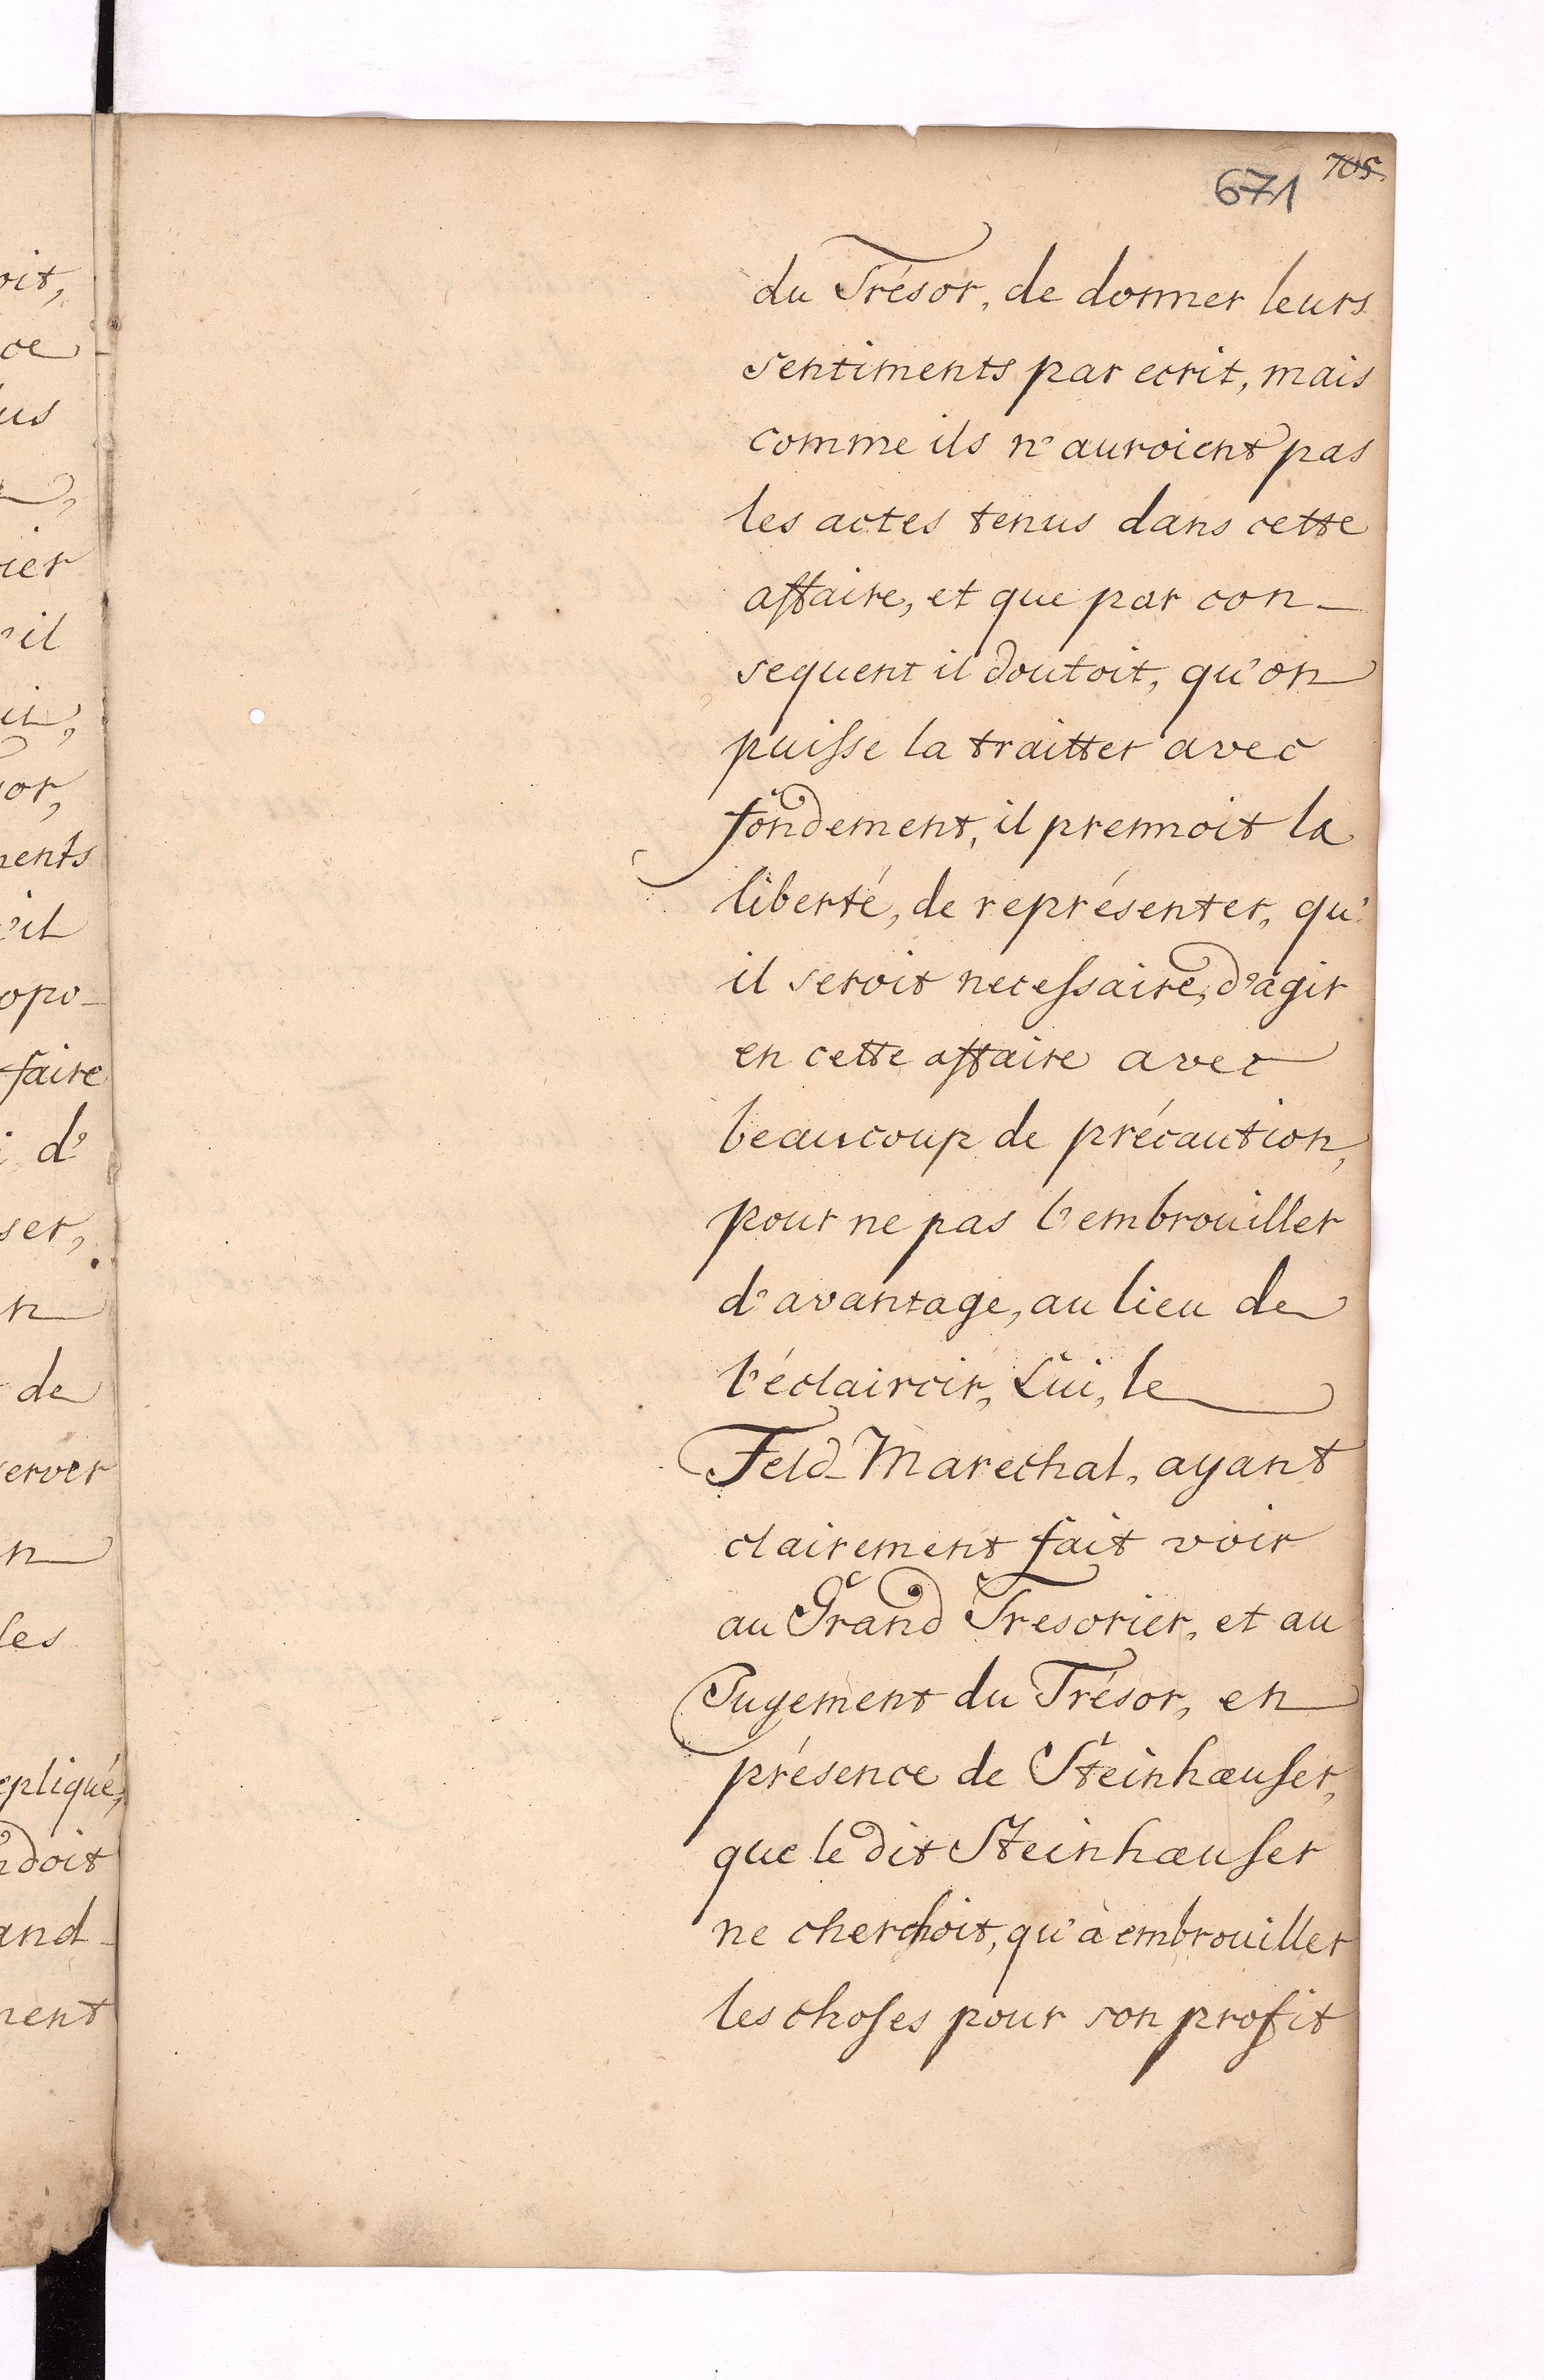 oit,
ce
us
ier
'il
or,
ments
'il
opo-
faire
d'
ser,
n
de
server
n
les
epliqué,
ndoit
and-
ment
671 705.
du Trésor, de donner leurs
sentiments par ecrit, mais
comme ils n'auroient pas
les actes tenus dans cette
affaire, et que par con-
sequent il doutoit, qu'on
puisse la traitter avec
fondement, il prennoit la
liberté, de représenter, qu'
il seroit necessaire, d'agir
en cette affaire avec
beaucoup de précaution,
pour ne pas l'embrouiller
d'avantage, au lieu de
l'éclaircir, Lui, le
Feld-Marechal, ayant
clairement fait voir
au Grand Tresorier, et au
Jugement du Trésor, en
présence de Steinhæuser,
que le dit Steinhæuser
ne cherchoit, qu'à embrouiller
les choses pour son profit